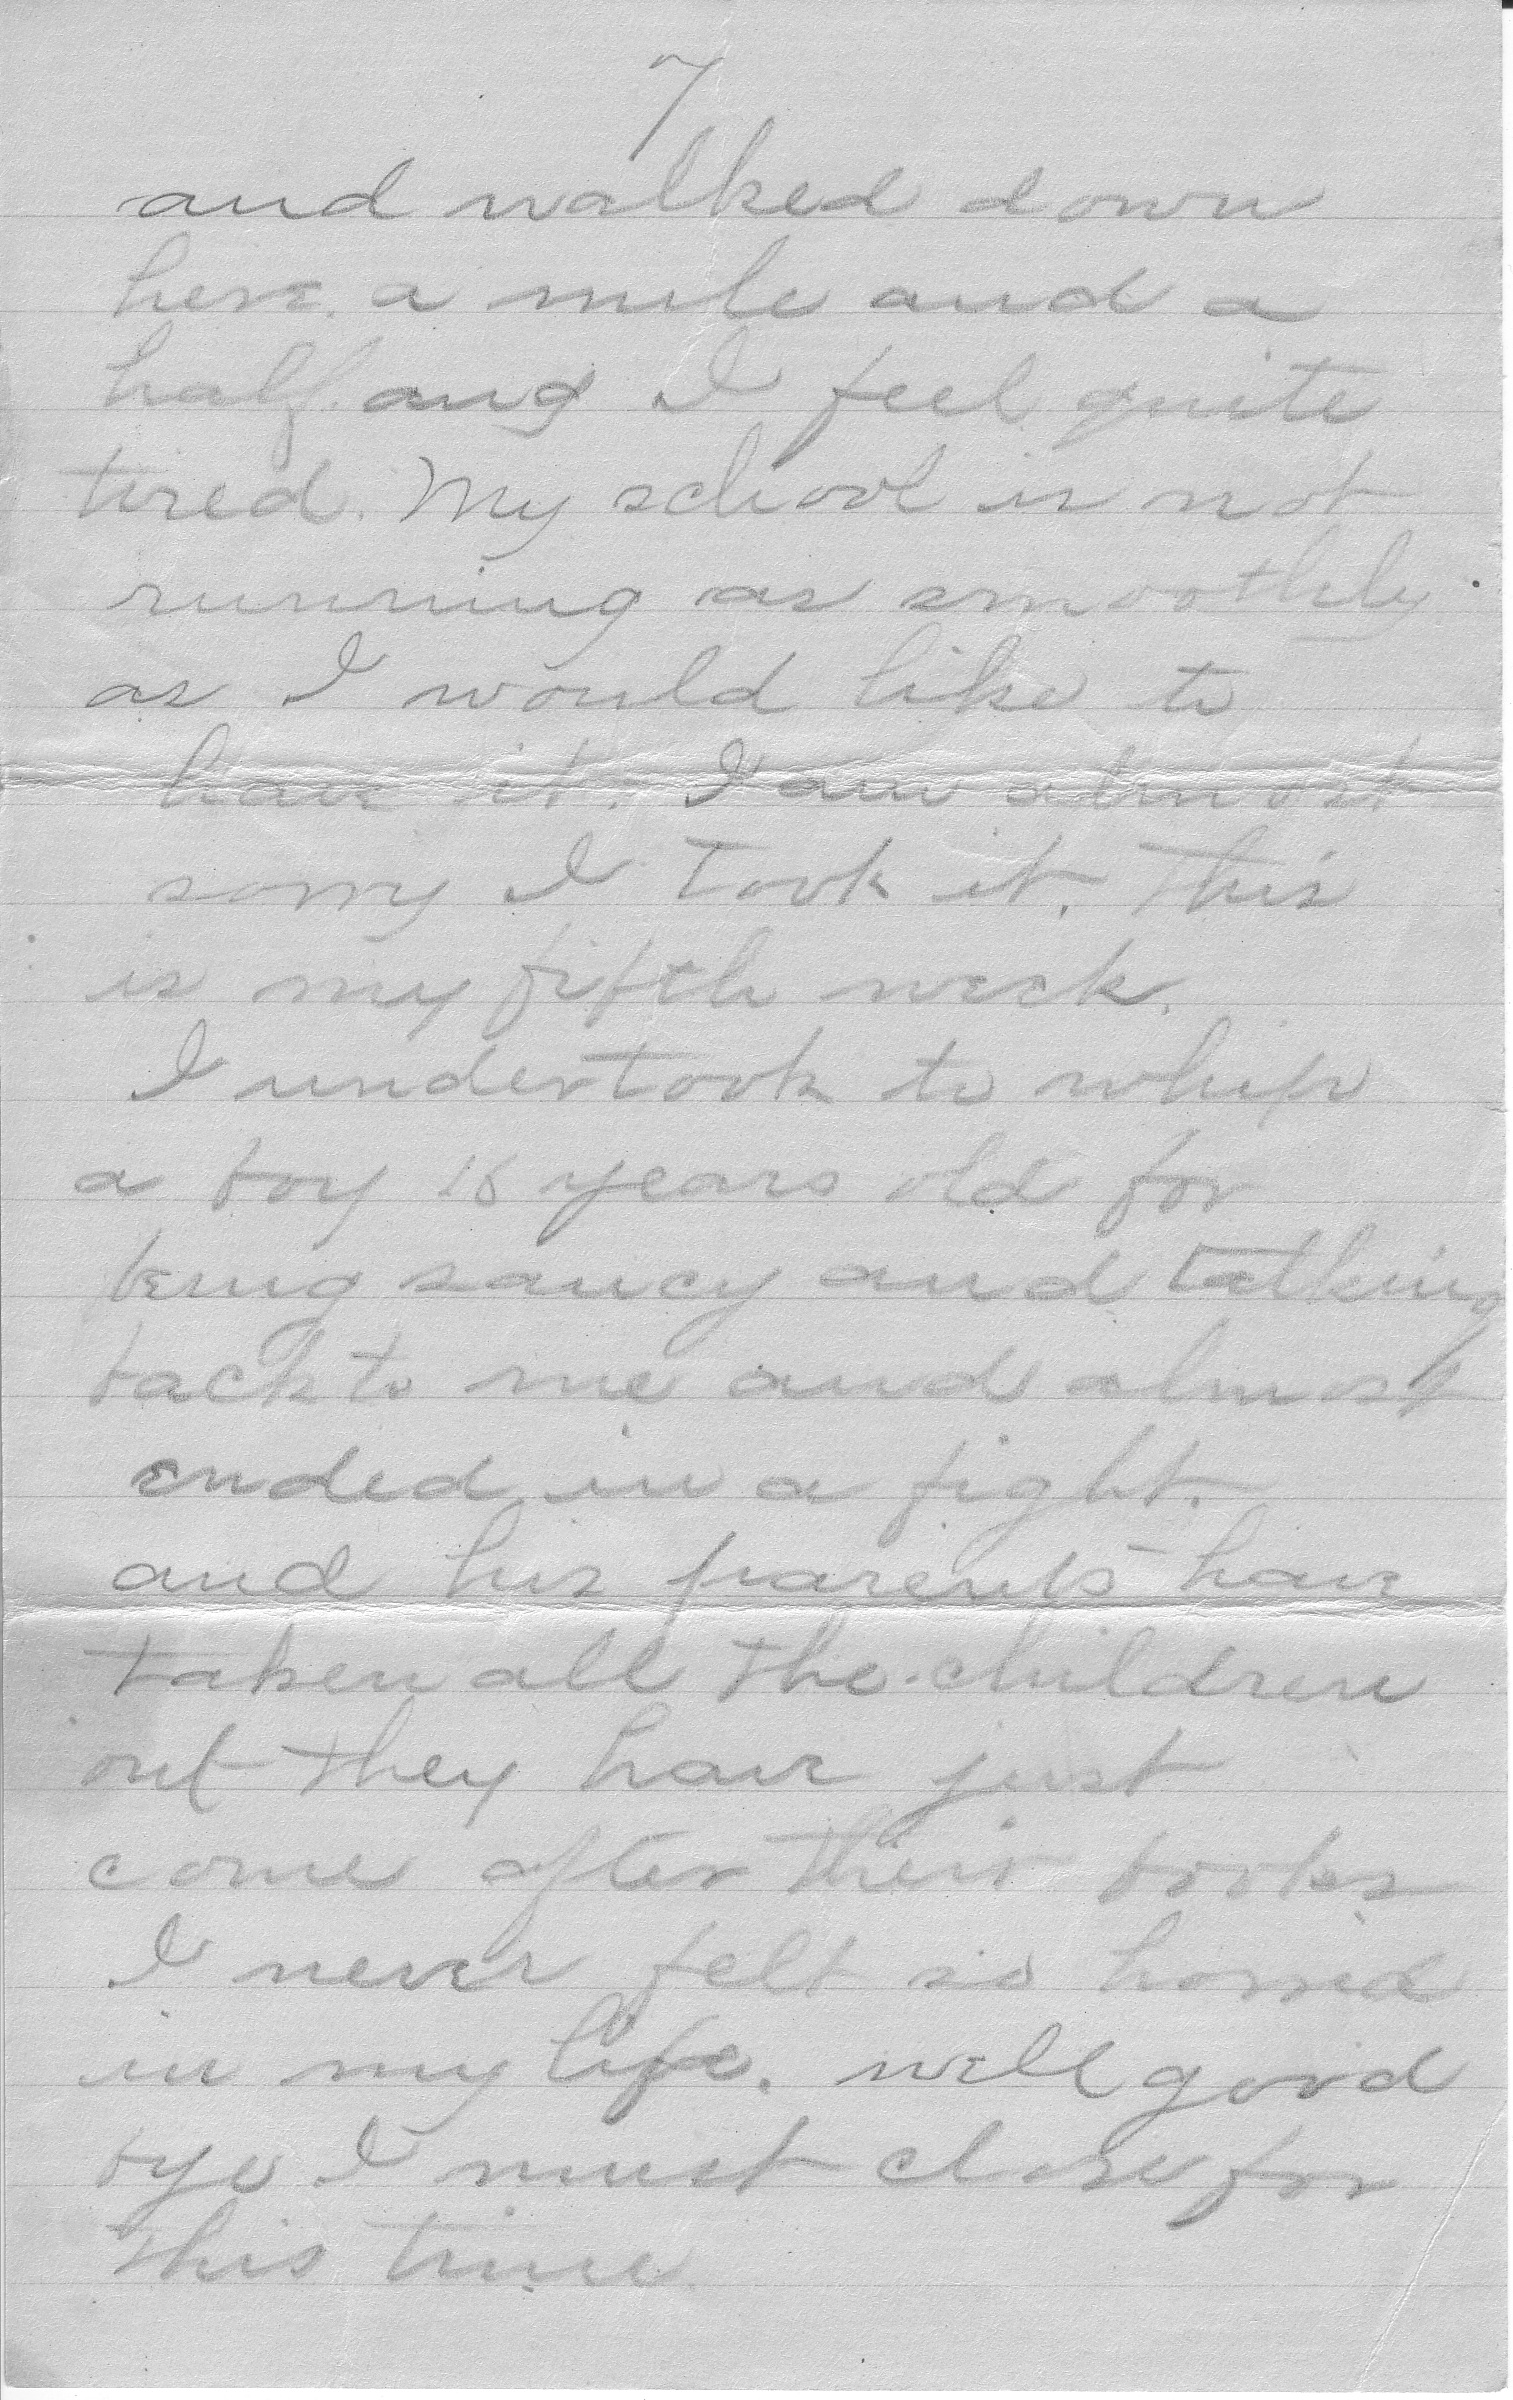 7
and walked down
here a mile and a
half and I feel quite
tired. My school is not
running as smoothly
as I would like to
have it. I am almost
sorry I took it. This
is my fifth week.
I undertook to whip
a boy years old for
being saucy and talking
back to me and almost
ended in a fight.
and his parents have
taken all the children
out they have just
come after their books
I never felt so horrid
in my life. well good
bye I must close for
this time